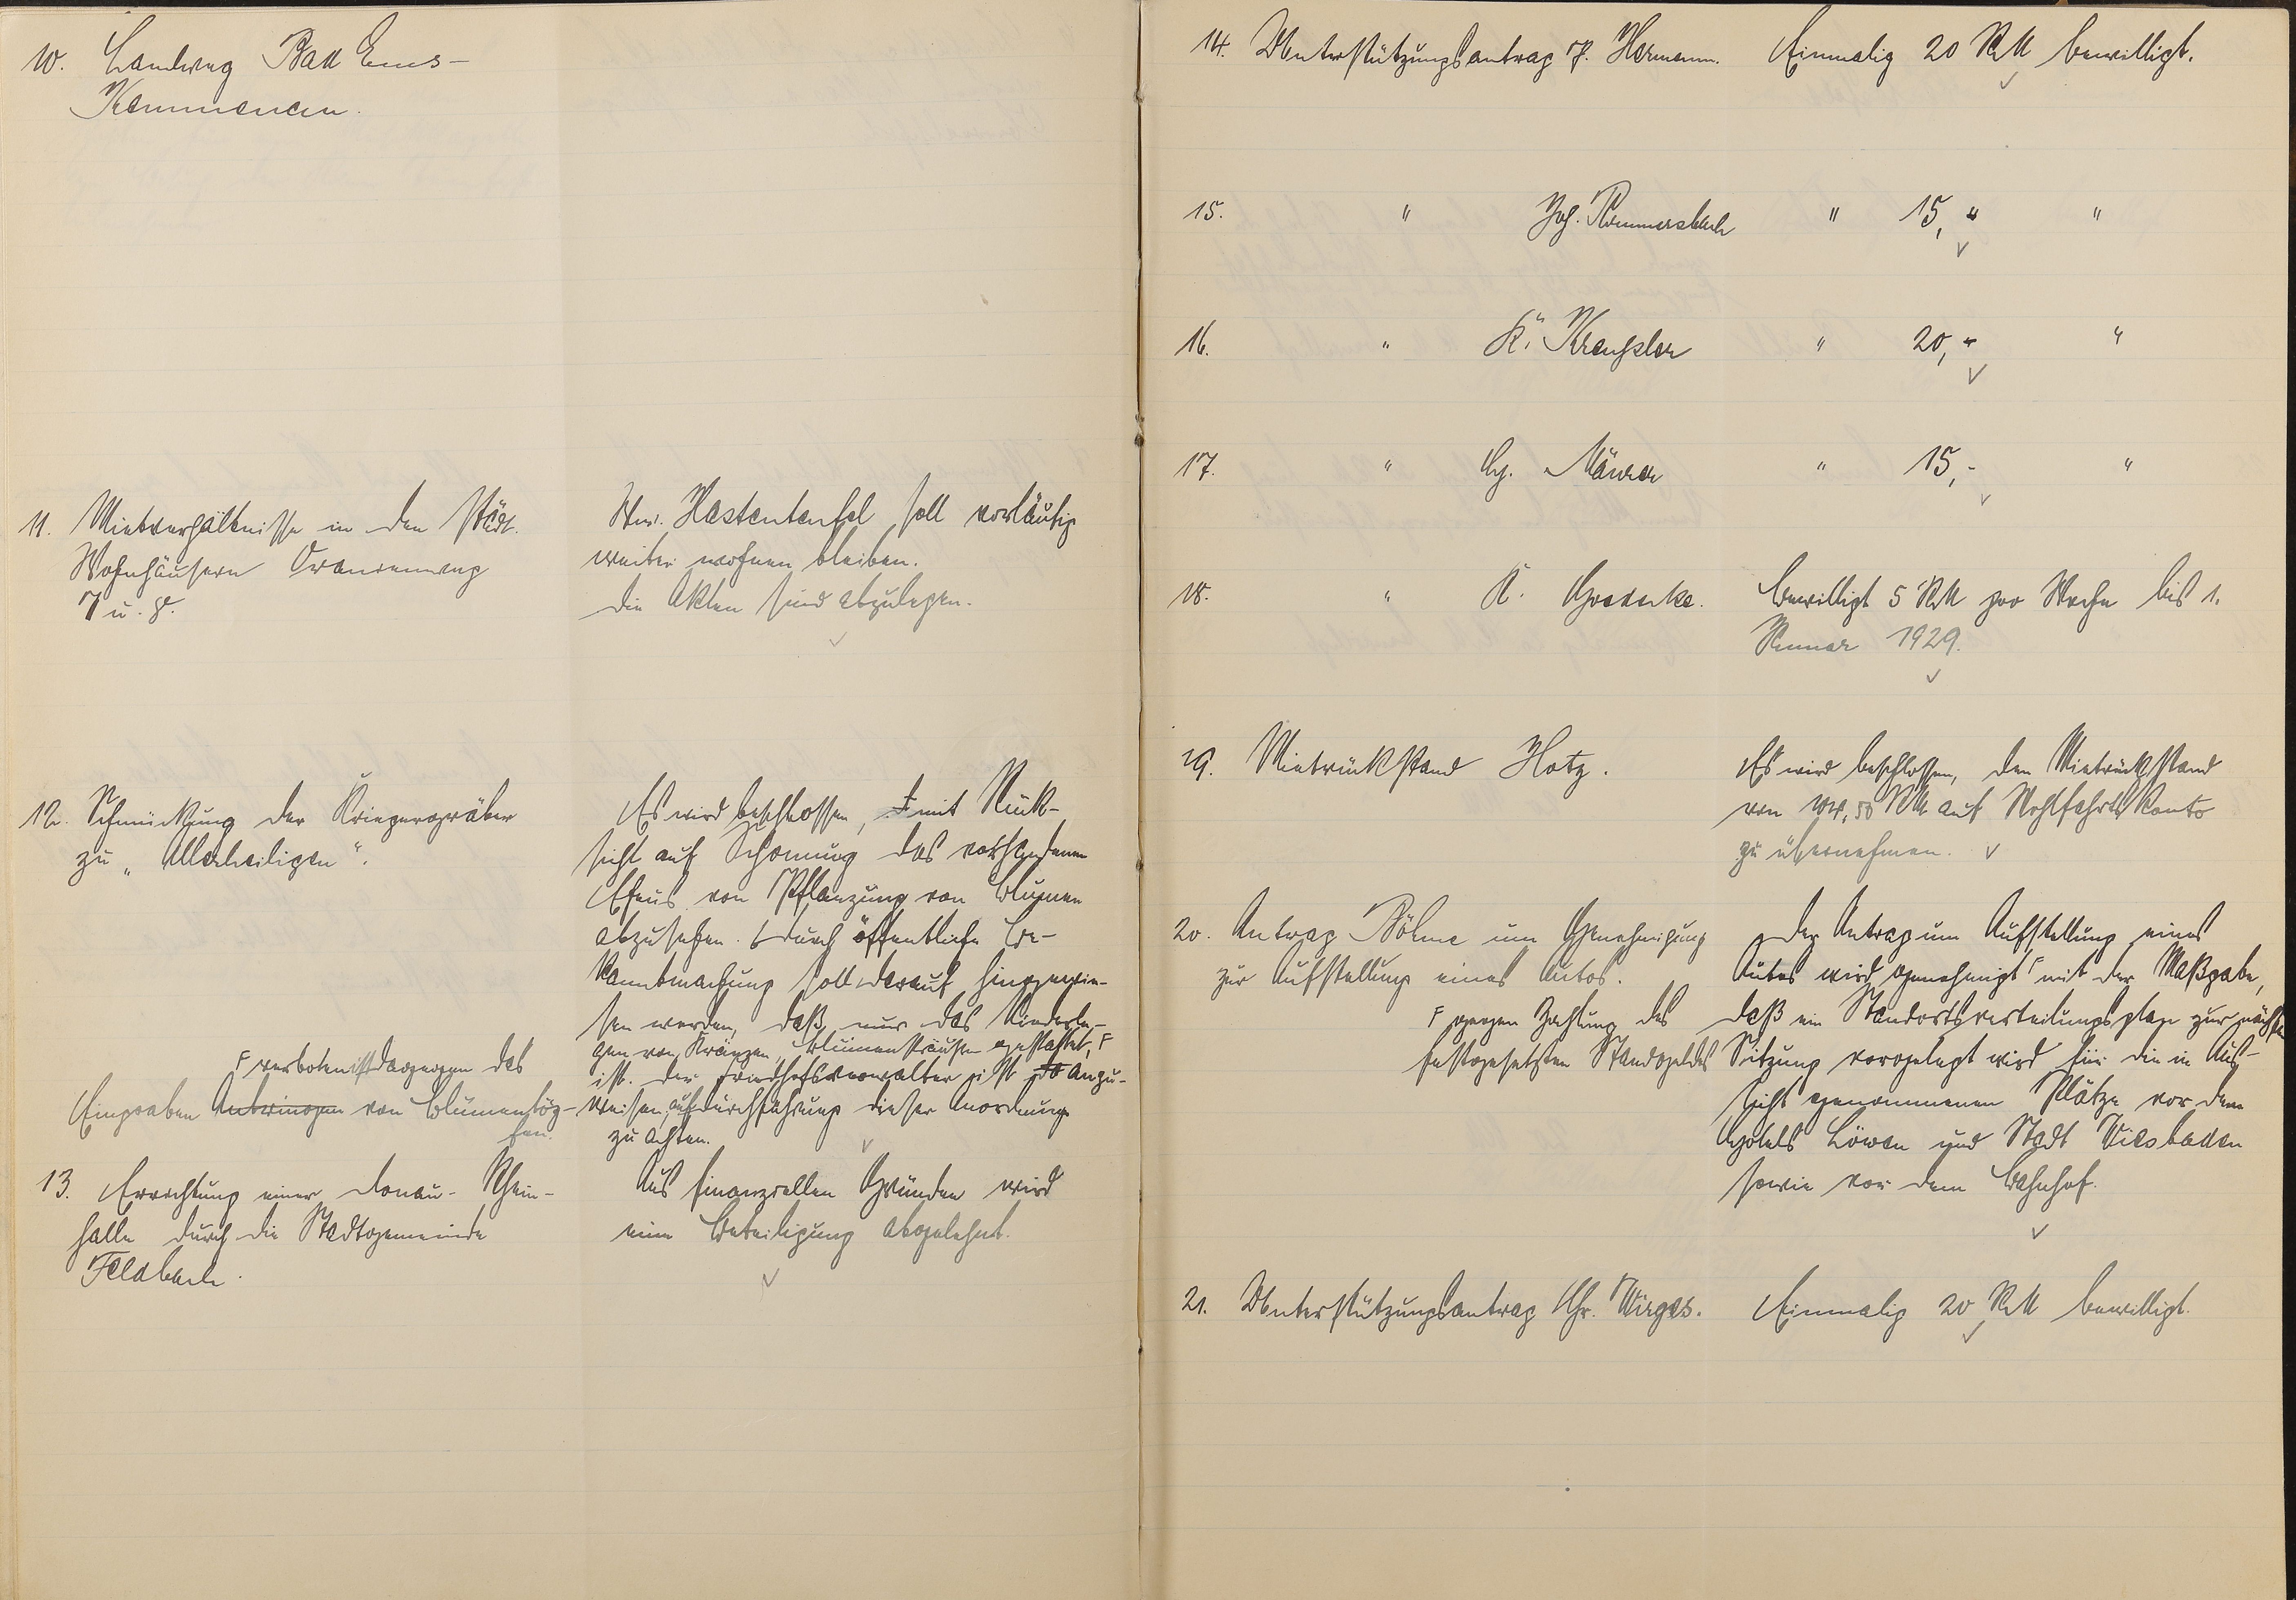 10. Landweg Bad Ems-
Kemmenau.
11. Mietverhältnisse in den Städt.
Wohnhäusern Oranienweg
7 u. 8.
Ww. Hastenteufel soll vorläufig
weiter wohnen bleiben.
Die Akten sind abzulegen.
12. Schmückung der Kriegergräber
zu „Allerheiligen“.
Es wird beschlossen, mit Rück-
sicht auf Schonung des vorhandenen
Efeus von Pflanzung von Blumen
abzusehen. Durch öffentliche Be-
kanntmachung soll darauf hingewie-
sen werden, daß nur das Niederle-
gen von Kränzen, Blumensträußen gestattet, F
ist. Der Friedhofsverwalter ist anzu-
weisen, auf Durchführung dieser Anordnung
zu achten.
F verboten ist dagegen das
Eingraben von Blumentöp-
fen.
13. Errichtung einer Donau-Rhein-
halle durch die Stadtgemeinde
Feldbach.
Aus finanziellen Gründen wird
eine Beteiligung abgelehnt.
14. Unterstützungsantrag P. Hermann. Einmalig 20 RM bewilligt.
15. " Joh. Rommersbach " 15, " "
16. " K. Krengler " 20, " "
17. " Näurer " 15,- "
18. " K. Groducke. Bewilligt 5 RM pro Woche bis 1.
Januar 1929.
19. Mietrückstand Hotz.
Es wird beschlossen, den Mietrückstand
von 104,50 RM auf Wohlfahrtskonto
zu übernehmen.
20. Antrag Böhme um Genehmigung
zur Aufstellung eines Autos.
F gegen Zahlung des
festgesetzten Standgeldes
Der Antrag um Aufstellung eines
Autos wird genehmigt F mit der Maßgabe,
daß ein Standortsverteilungsplan zur nächsten
Sitzung vorgelegt wird für die in Aus-
sicht genommenen Plätze vor dem
Hotels Löwen und Stadt Wiesbaden
sowie vor dem Bahnhof.
21. Unterstützungsantrag Chr. Wirges. Einmalig 20 RM bewilligt.